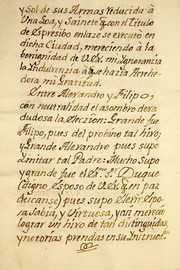 y Sol de sus Armas reducida à
Una Loa, y Sainete q. con el Titulo
de Espresibo enlaze se executò en
dicha Ciudad, mereciendo à la
benignidad de V.Ex. mi Ignorancia
la Indulgencia à que haria
mi Gratitud.
Entre Alexandro y Filipo
con neutralidad el asombro dexa
dudosa la eleccion: Grande fue
Filipo, pues del produxo tal hivo,
y Grande Alexandro pues supo
imitar tal Padre: Mucho Supo
y grande fue el Duque
(digno Esposo de V.Ex. q. en paz
descanse) pues supo Elexir Espo-
sa Sabia, y Virtuosa,
lograr un hivo de tan distinguidas
y notorias prendas en su